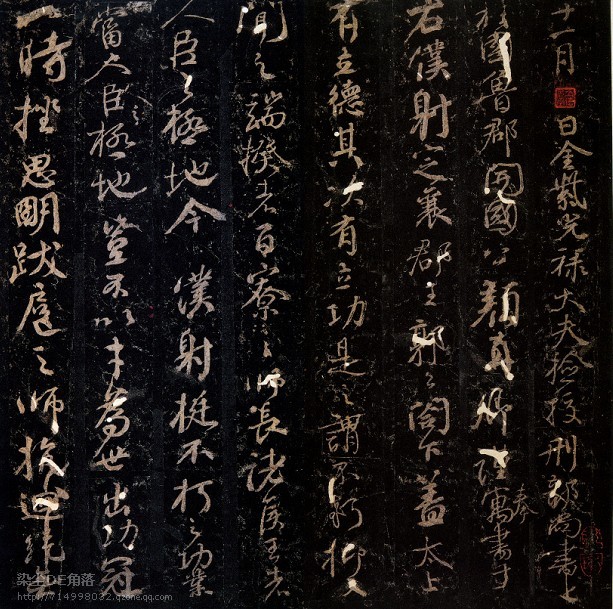 十一月日金紫光祿大夫檢校刑部尚書上
柱國魯郡開國公顏真卿謹奉寓書于
右僕射定襄郡王郭公閤下蓋太上
有立德其次有立功是之謂不朽抑又
聞之端揆者百寮之師長諸侯王者
人臣之極地今僕射挺不朽之功業
當人臣之極地豈不以才為世出功冠
一時挫思明跋扈之師抗迴紇無
染尘DE角落
http://714998032.qzone.qq.com